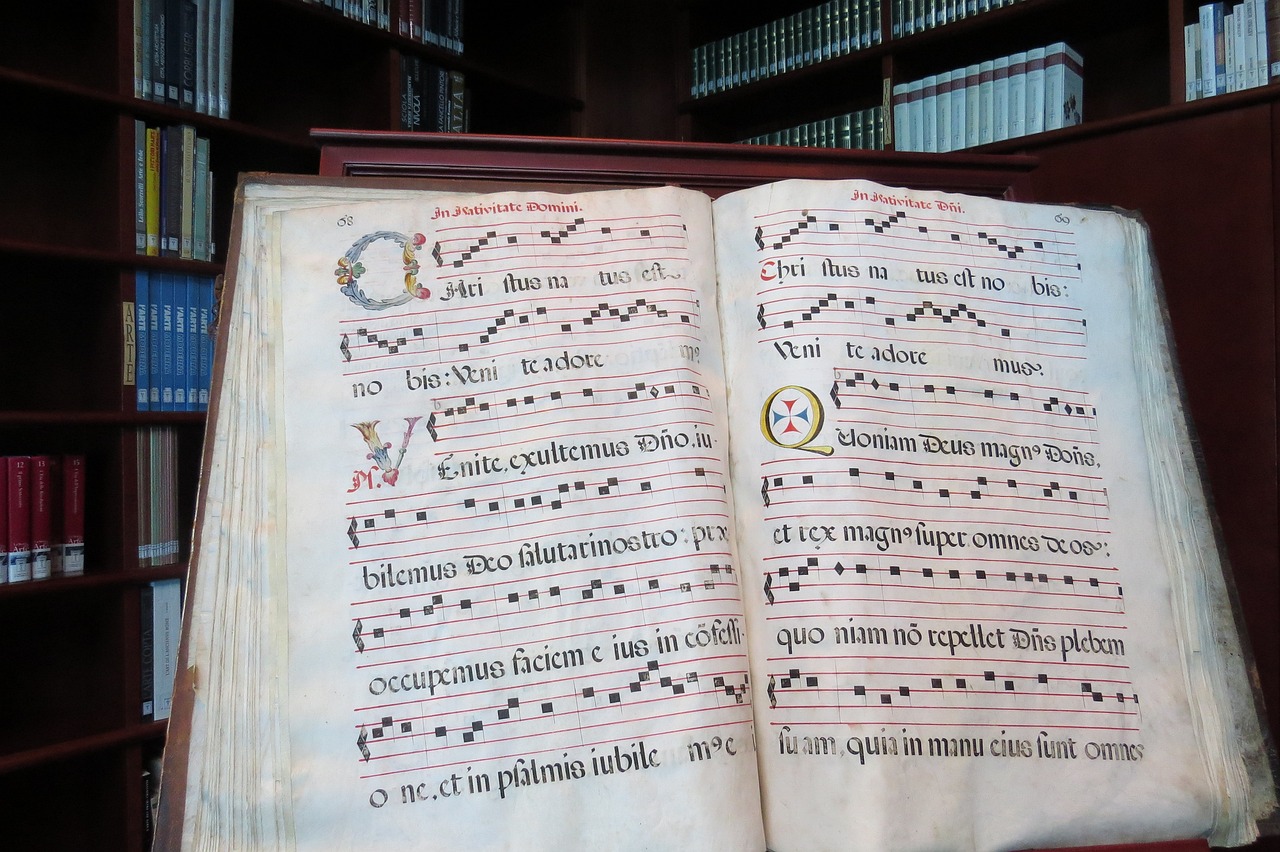 68
In Nativitate Domini.
CHri stus na tus est
no bis: Veni te adore m9
Ps. VEnite, exultemus Dño, iu-
bilemus Deo salutarinostro: præ
occupemus faciem e ius in cõfessi-
o ne, et in psalmis iubile m9 e
69
In Nativitate Dñi.
Chri stus na tus est no bis:
Veni te adore mus.
Quoniam Deus magn9 Dõns,
et rex magn9 super omnes deos;
quo niam nõ repellet Dñs plebem
su am, quia in manu eius sunt omnes
ARTE
L'ARTE
L'ARTE
L'ARTE
L'ARTE
L'ARTE
12
13
15